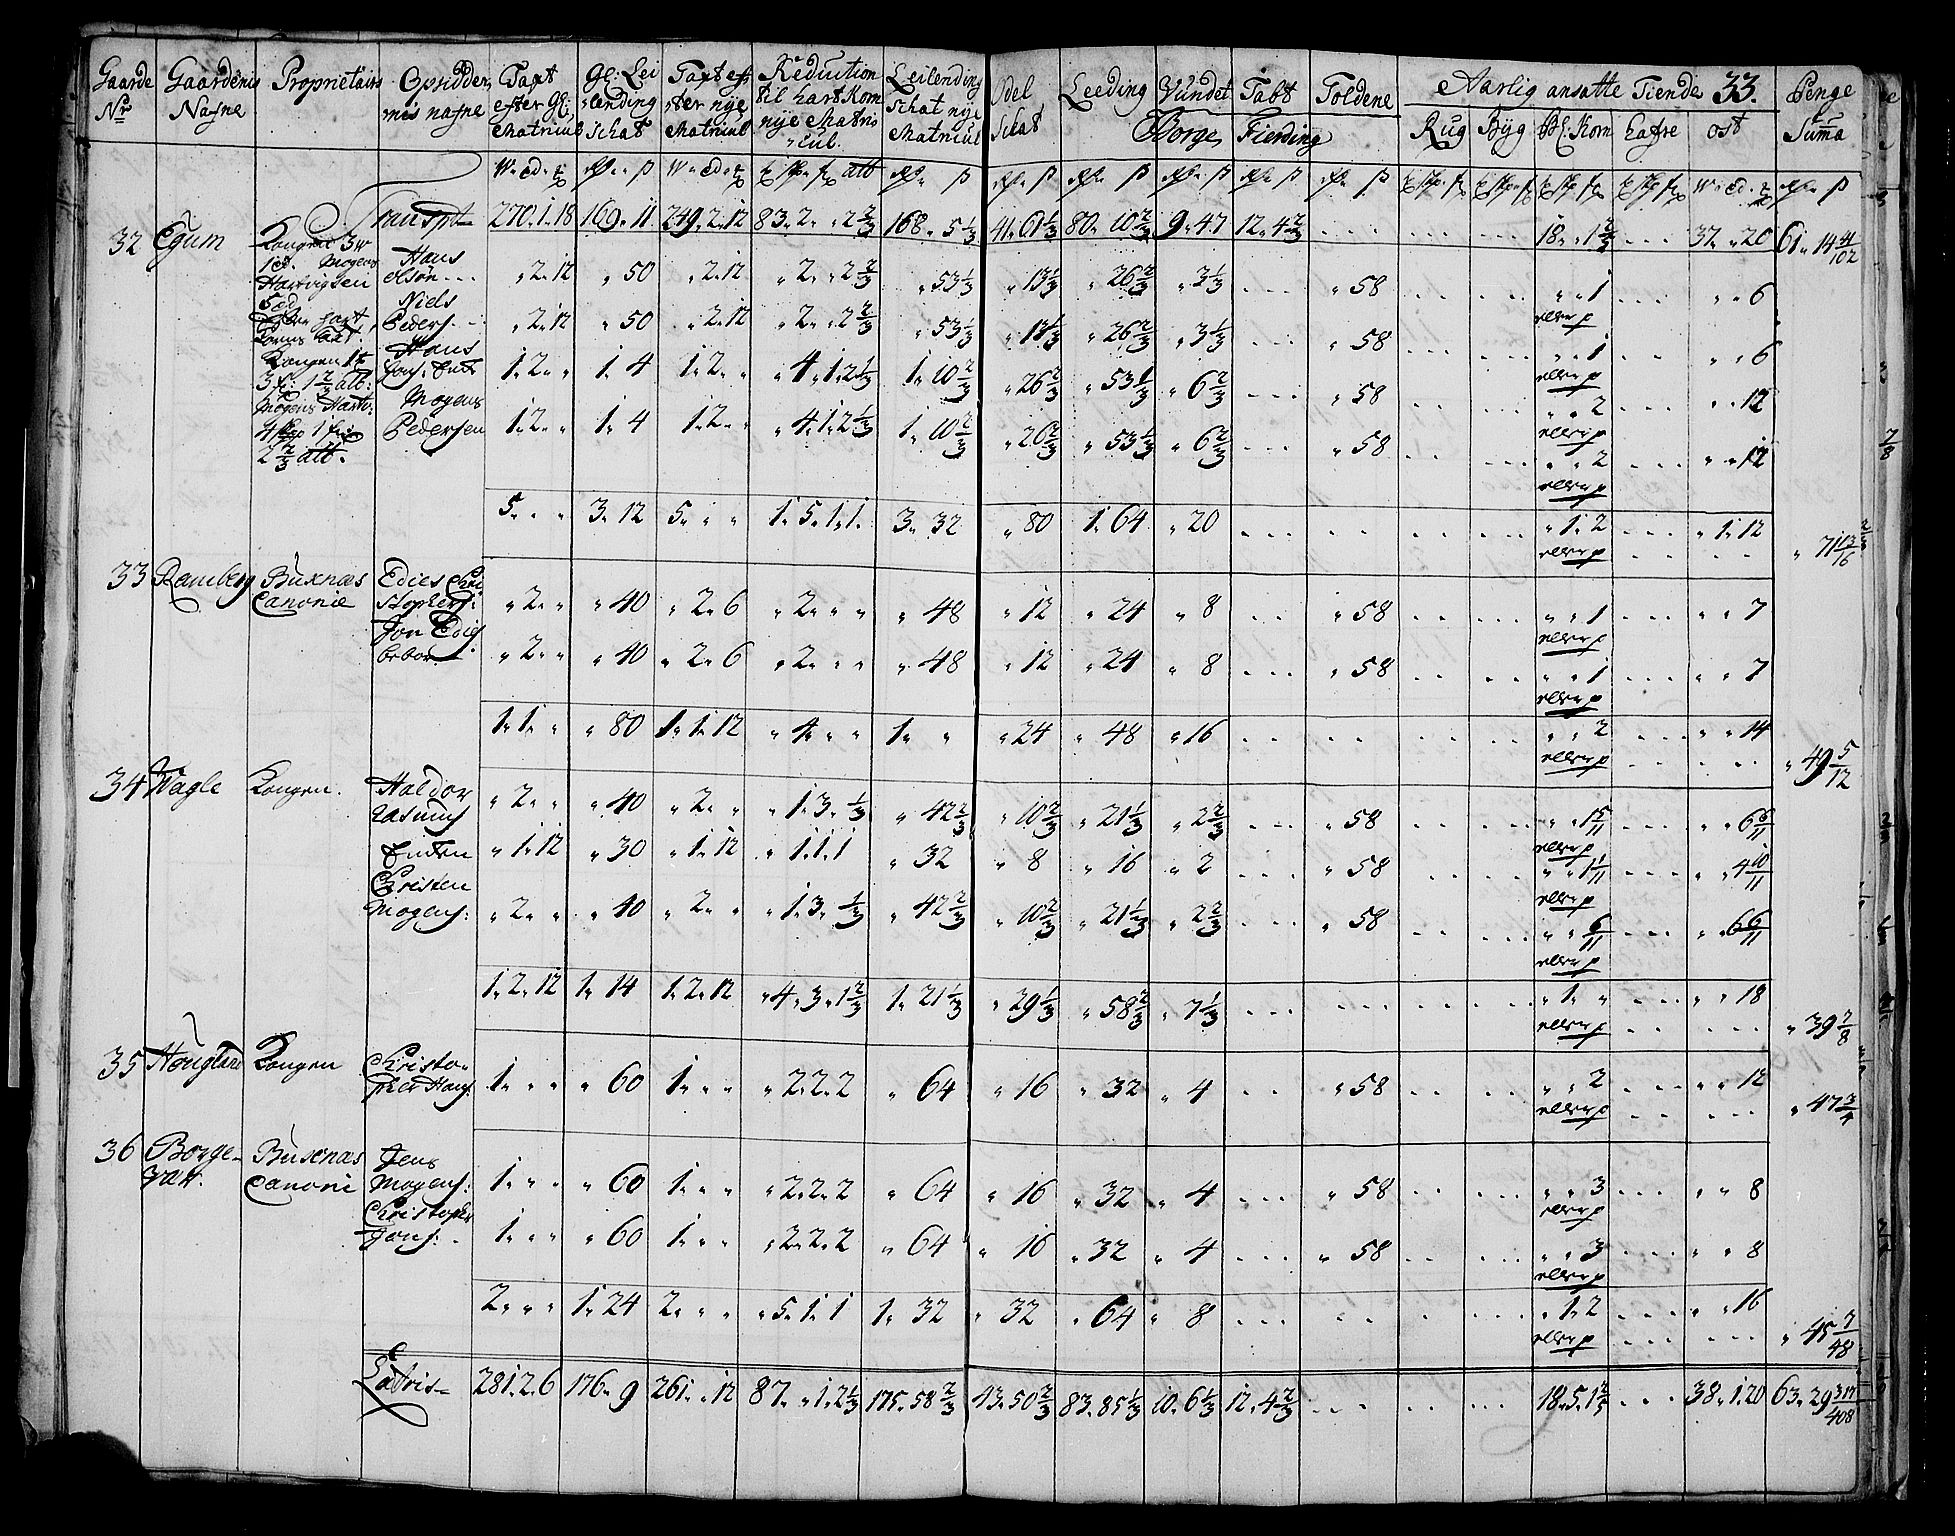 Gaarde Nr | Gaardens Nafne | Proprietairs | Opsidder nis nafne | Taxt efter Gl: Matricul | Gl: Lei lending schat | Taxt ef ter nye Matricul | Reduction til hart Korn nye Matri cul. | Leilending schat nye Matricul | Odel Schat | Leeding | Vundet | Tabt | Toldene | Aarlig ansatte Tiende 33. | Penge Suma
Borge Fierding | Rug | Byg | Bl: Korn | hafre | ost
Transpt | 270. 1. 18 | 169. 11 | 249. 2. 12 | 83. 2. „ 2 2/3 | 168. 5 1/3 | 41. 61 1/3 | 80. 10 2/3 | 9. 47 | 12. 4 2/3 | 18. „ 1 2/3 | 37. „ 20 | 61. 14 41/102
32 Egum | Kongen 3 w 1 ed. Mogens Hartvigsen 5 ed
Hans Olsøn | „ 2. 12 | „ 50 | „ 2. 12 | „ 2. „ 2 2/3 | „ 53 1/3 | „ 13 1/3 | „ 26 2/3 | „ 3 1/3 | „ 58 | „ „ 1 | „ „ 6
Niels Peders. | „ 2. 12 | „ 50 | „ 2. 12 | „ 2. „ 2 2/3 | „ 53 1/3 | „ 13 1/3 | „ 26 2/3 | „ 3 1/3 | „ 58 | „ „ 1 | „ „ 6
Kongen 1 3 f: 1 2/3 alb:
Hans | 1. 2. „ | 1. 4 | 1. 2. „ | „ 4. 1. 2 1/3 | 1. 10 2/3 | „ 26 2/3 | „ 53 1/3 | „ 6 2/3 | „ 58 | „ „ 2 | „ „ 12
Mogens Hartv: 4 1 2 2/3 alb.
Mogens Pedersen | 1. 2. „ | 1. 4 | 1. 2. „ | „ 4. 1. 2 1/3 | 1. 10 2/3 | „ 26 2/3 | „ 53 1/3 | „ 6 2/3 | „ 58 | „ „ 2 | „ „ 12
5. „ „ | 3. 12 | 5. „ „ | 1. 5. 1. 1. | 3. 32 | „ 80 | 1. 64 | „ 20 | „ 1. 2 | „ 1. 12 | „ 71 13/16
33 Ramberg | Buxnæs Canonie | Edies Chri stophers: | „ 2. „ | „ 40 | „ 2. 6 | „ 2. „ „ | „ 48 | „ 12 | „ 24 | „ 8 | „ 58 | „ „ 1 | „ „ 7
Jon Edies | „ 2. „ | „ 40 | „ 2. 6 | „ 2. „ „ | „ 48 | „ 12 | „ 24 | „ 8 | „ 58 | „ „ 1 | „ „ 7
1. 1. „ | „ 80 | 1. 1. 12 | „ 4. „ „ | 1. „ | „ 24 | „ 48 | „ 16 | „ „ 2 | „ „ 14 | „ 49 5/12
34 Wagle | Kongen. | Haldor Rasmus | „ 2. „ | „ 40 | „ 2. „ | „ 1. 3. 1/3 | „ 42 2/3 | „ 10 2/3 | „ 21 1/3 | „ 2 2/3 | „ 58 | „ „ 1 5/11 | „ „ 6 6/11
Enken | „ 1. 12 | „ 30 | „ 1. 12 | „ 1. 1. 1 | „ 32 | „ 8 | „ 16 | „ 2 | „ 58 | „ „ 1 1/11 | „ „ 4 10/11
Christen Mogens: | „ 2. „ | „ 40 | „ 2. „ | „ 1. 3. 1/3 | „ 42 2/3 | „ 10 2/3 | „ 21 1/3 | „ 2 2/3 | „ 58 | „ „ 6/11 | „ „ 6 6/11
1. 2. 12 | 1. 14 | 1. 2. 12 | „ 4. 3. 1 2/3 | 1. 21 1/3 | „ 29 1/3 | „ 58 2/3 | „ 7 1/3 | „ 1. „ | „ „ 18 | „ 39 7/8
35 Hougland | Kongen | Christo pher Hans: | 1. „ „ | „ 60 | 1. „ „ | „ 2. 2. 2 | „ 64 | „ 16 | „ 32 | „ 4 | „ 58 | „ „ 2 | „ „ 12 | „ 47 3/4
36 Borge vatt. | Buxnæs Canonie | Jens Mogens: | 1. „ „ | „ 60 | 1. „ „ | „ 2. 2. 2 | „ 64 | „ 16 | „ 32 | „ 4 | „ 58 | „ „ 3 | „ „ 8
Christopher Jons: | 1. „ „ | „ 60 | 1. „ „ | „ 2. 2. 2 | „ 64 | „ 16 | „ 32 | „ 4 | „ 58 | „ „ 3 | „ „ 8
2. „ „ | 1. 24 | 2. „ „ | „ 5. 1. 1 | 1. 32 | „ 32 | „ 64 | „ 8 | „ 1. 2 | „ „ 16 | „ 45 7/48
Latris | 281. 2. 6 | 176. 9 | 261. „ 12 | 87. „ 1. 2 1/3 | 175. 58 2/3 | 43. 50 2/3 | 83. 85 1/3 | 10. 6 1/3 | 12. 4 2/3 | 18. 5. 1 2/3 | 38. 1. 20 | 63. 29 317/408